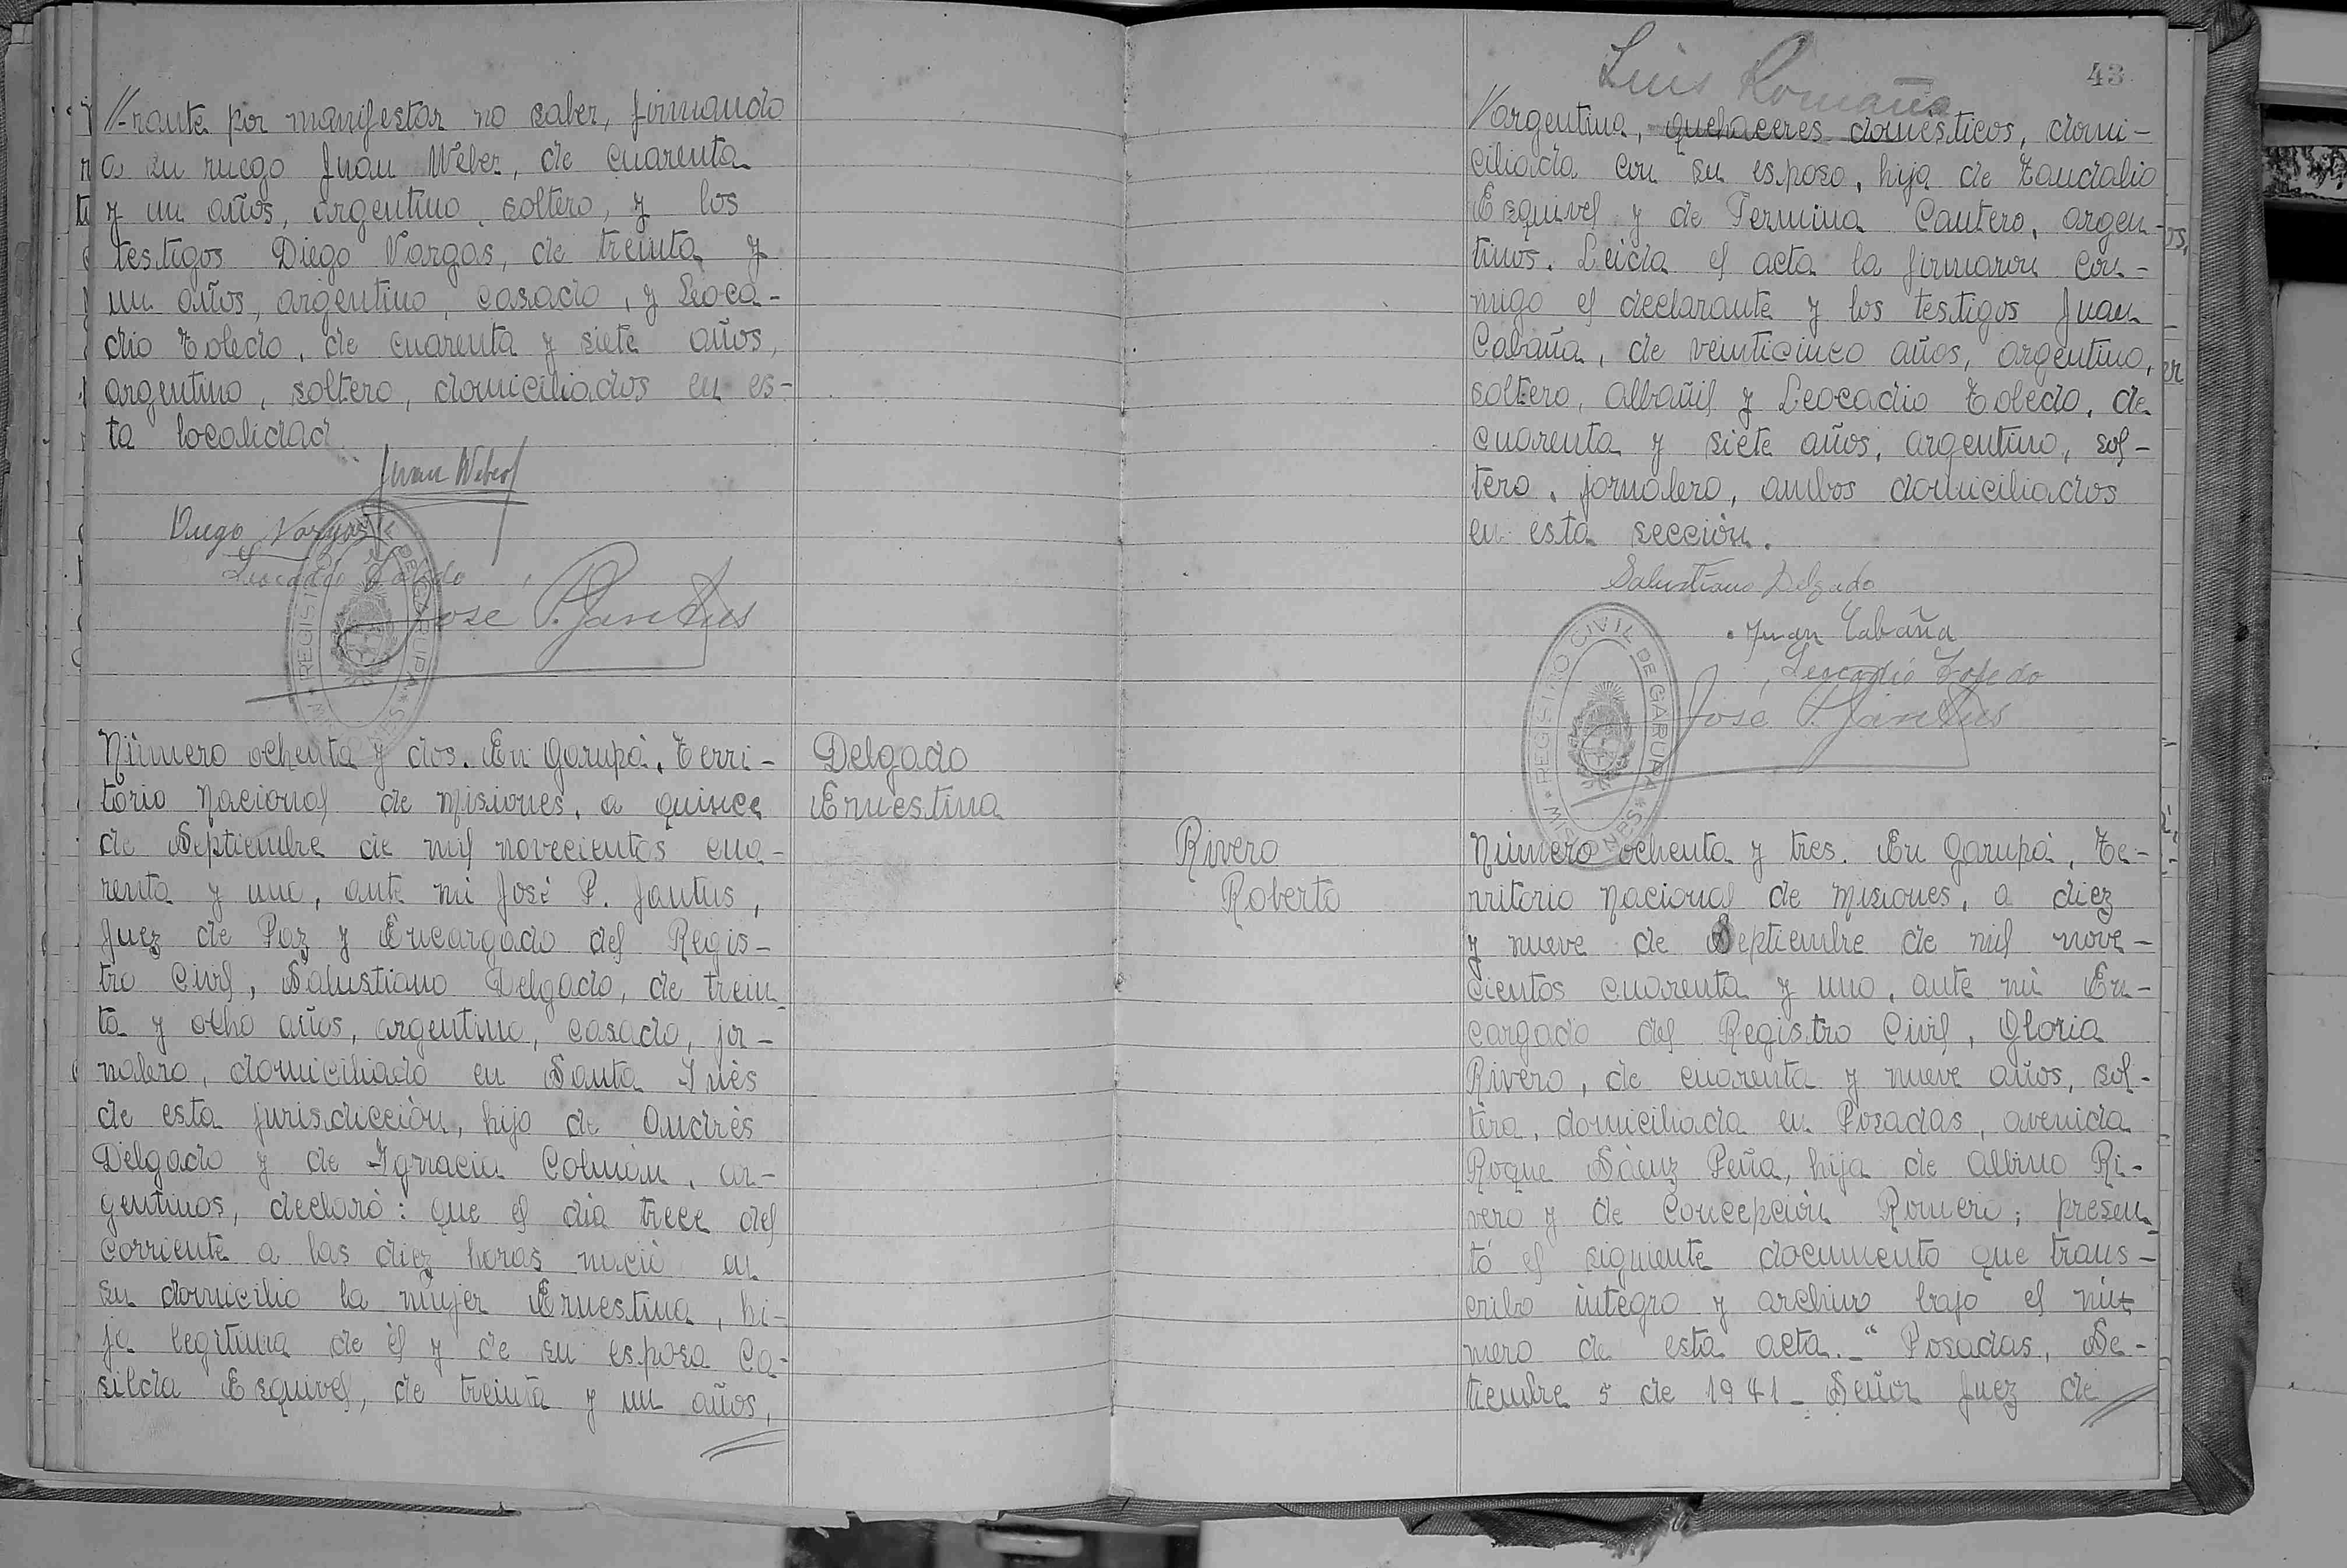 //-rante por manifestar no saber, firmando
a su ruego Juan Weber, de cuarenta
y un años, argentino, soltero, y los
testigos Diego Vargas, de treinta y
un años, argentino, casado, y Leoca-
dio Toledo, de cuarenta y siete años,
argentino, soltero, domiciliados en es-
ta localidad.
Juan Weber
Diego Vargas
Leocadio Toledo
José P. Jantus
REGISTRO CIVIL DE GARUPA
* MISIONES *
Número ochenta y dos. En Garupá, Terri-
torio Nacional de Misiones, a quince
de Septiembre de mil novecientos cua-
renta y uno, ante mi José P. Jantus,
Juez de Paz y Encargado del Regis-
tro Civil, Salustiano Delgado, de trein-
ta y ocho años, argentino, casado, jor-
nalero, domiciliado en Santa Inés
de esta jurisdicción, hijo de Andrés
Delgado y de Ignacia Colmán, ar-
gentinos, declaró: que el día trece del
corriente a las diez horas nació en
su domicilio la mujer Ernestina, hi-
ja legítima de él y de su esposa Ca-
silda Esquivel, de treinta y un años,
Delgado
Ernestina
Luis Romaña
43
//argentina, quehaceres domésticos, domi-
ciliada con su esposo, hija de Zandalio
Esquivel y de Fermina Cantero, argen-
tinos. Leida el acta la firmaron con-
migo el declarante y los testigos Juan
Cabaña, de veinticinco años, argentino,
soltero, albañil y Leocadio Toledo, de
cuarenta y siete años, argentino, sol-
tero, jornalero, ambos domiciliados
en esta sección.
Salustiano Delgado
Juan Cabaña
Leocadio Toledo
José P. Jantus
REGISTRO CIVIL DE GARUPA
* MISIONES *
Rivero
Roberto
Número ochenta y tres. En Garupá, Te-
rritorio Nacional de Misiones, a diez
y nueve de Septiembre de mil nove-
cientos cuarenta y uno, ante mi En-
cargado del Registro Civil, Gloria
Rivero, de cuarenta y nueve años, sol-
tera, domiciliada en Posadas, avenida
Roque Sáenz Peña, hija de Albino Ri-
vero y de Concepción Romero; presen-
tó el siguiente documento que trans-
cribo integro y archivo bajo el nú-
mero de esta acta._ "Posadas, Se-
tiembre 5 de 1941_ Señor Juez de //